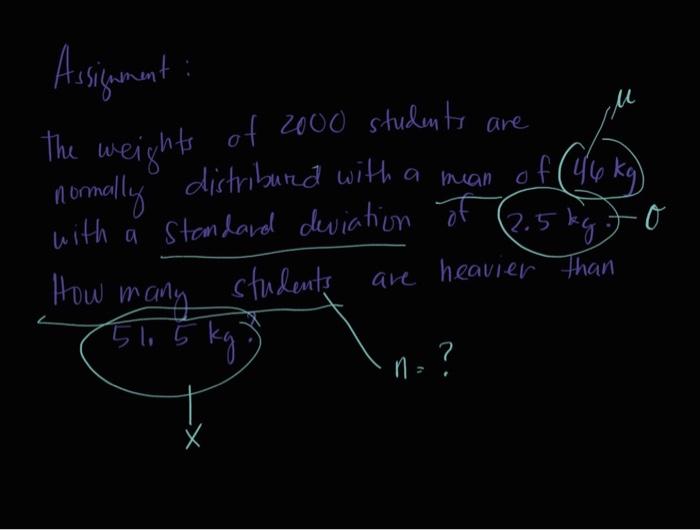 Assignment:
μ
The weights of 2000 students are
normally distribured with a mean of 46 kg
with a standard deviation of 2.5 kg. σ
How many students are heavier than
51.5 kg?
n = ?
X